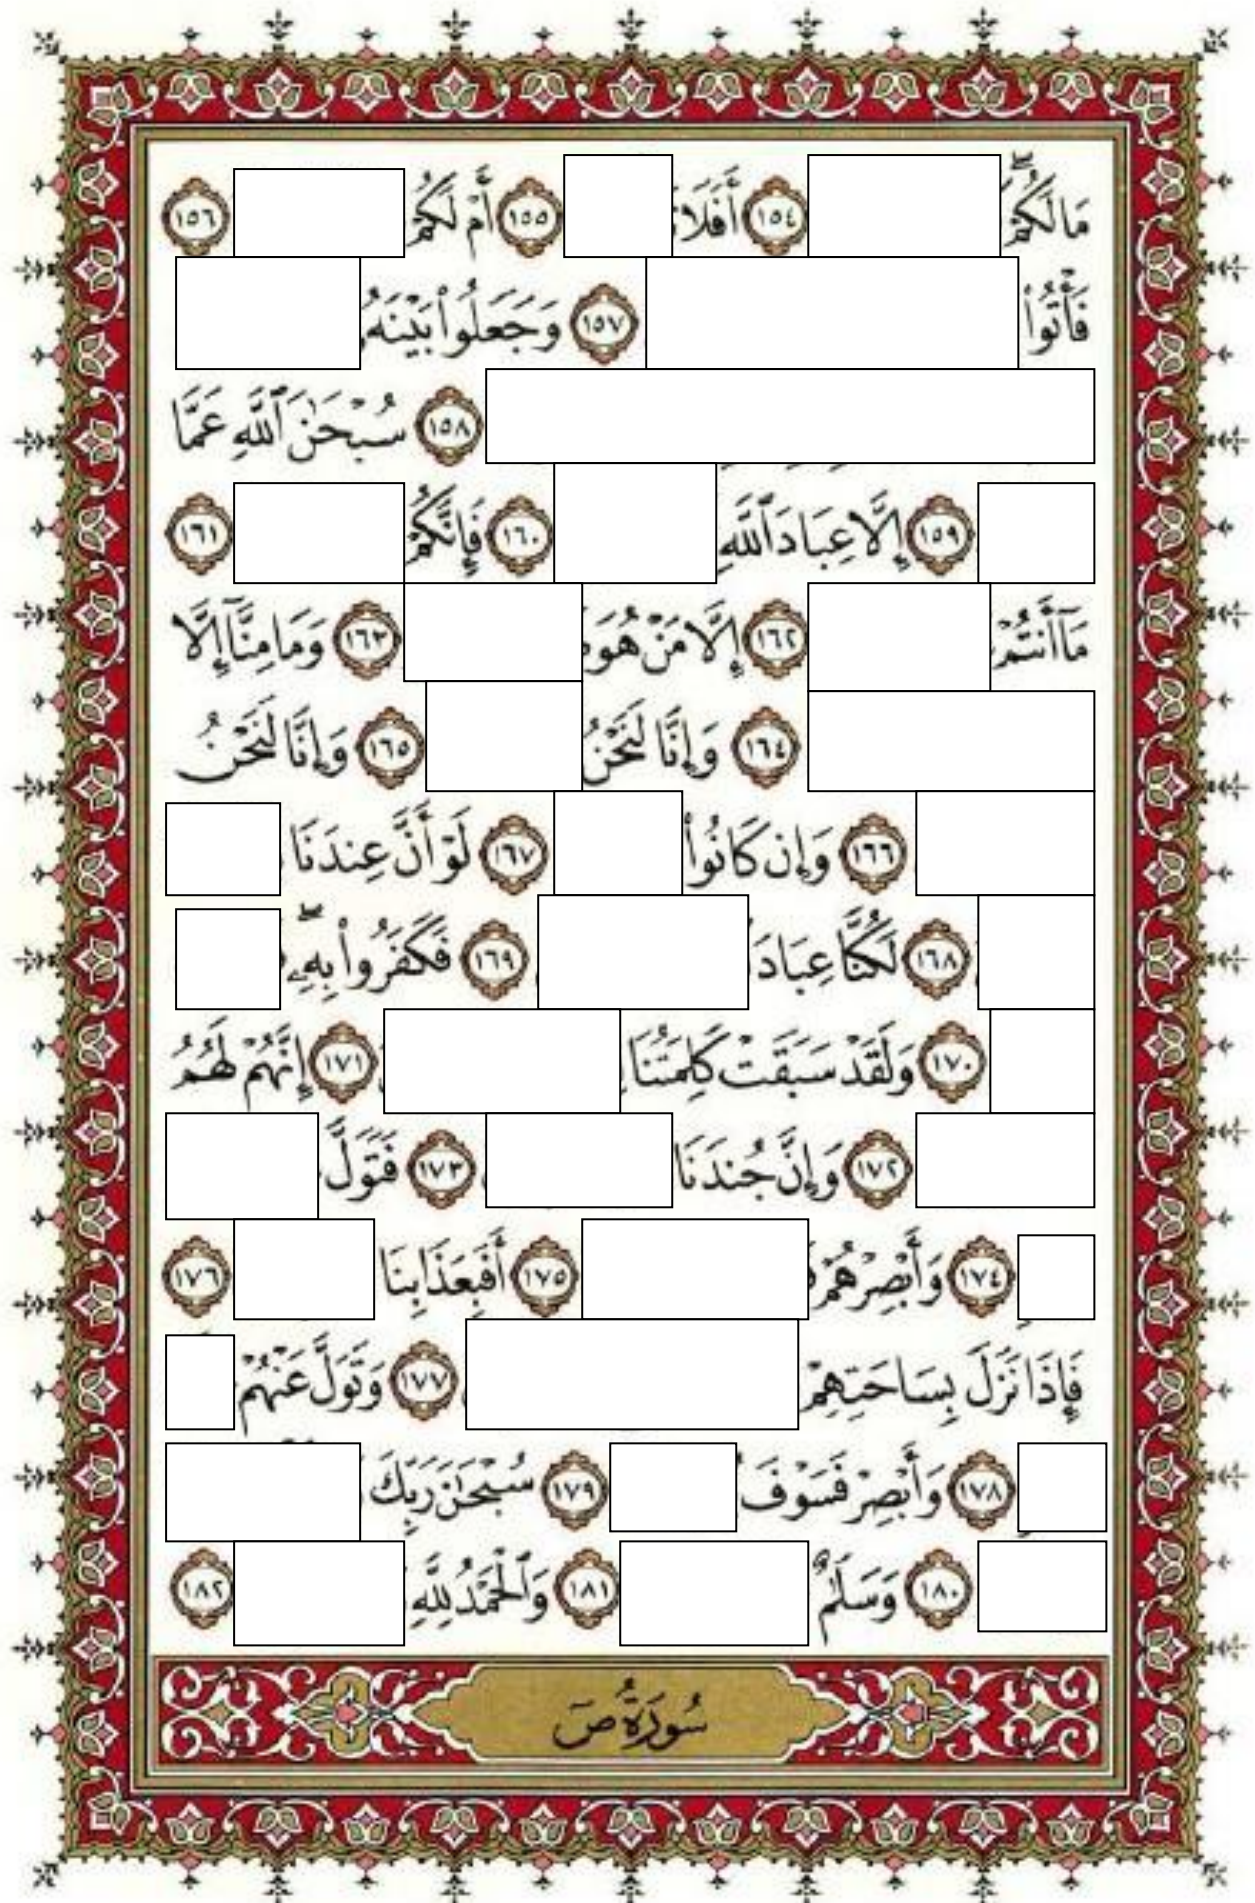 مَا لَكُمْ ۖ ١٥٤ أَفَلَا ١٥٥ أَمْ لَكُمْ ١٥٦
فَأْتُوا۟ ١٥٧ وَجَعَلُوا۟ بَيْنَهُۥ
١٥٨ سُبْحَـٰنَ ٱللَّهِ عَمَّا
١٥٩ إِلَّا عِبَادَ ٱللَّهِ ١٦٠ فَإِنَّكُمْ ١٦١
مَآ أَنتُمْ ١٦٢ إِلَّا مَنْ هُوَ ١٦٣ وَمَا مِنَّآ إِلَّا
١٦٤ وَإِنَّا لَنَحْنُ ١٦٥ وَإِنَّا لَنَحْنُ
١٦٦ وَإِن كَانُوا۟ ١٦٧ لَوْ أَنَّ عِندَنَا
١٦٨ لَكُنَّا عِبَادَ ١٦٩ فَكَفَرُوا۟ بِهِۦ ۖ
١٧٠ وَلَقَدْ سَبَقَتْ كَلِمَتُنَا ١٧١ إِنَّهُمْ لَهُمُ
١٧٢ وَإِنَّ جُندَنَا ١٧٣ فَتَوَلَّ
١٧٤ وَأَبْصِرْهُمْ ١٧٥ أَفَبِعَذَابِنَا ١٧٦
فَإِذَا نَزَلَ بِسَاحَتِهِمْ ١٧٧ وَتَوَلَّ عَنْهُمْ
١٧٨ وَأَبْصِرْ فَسَوْفَ ١٧٩ سُبْحَـٰنَ رَبِّكَ
١٨٠ وَسَلَـٰمٌ ١٨١ وَٱلْحَمْدُ لِلَّهِ ١٨٢
سُورَةُ صٓ